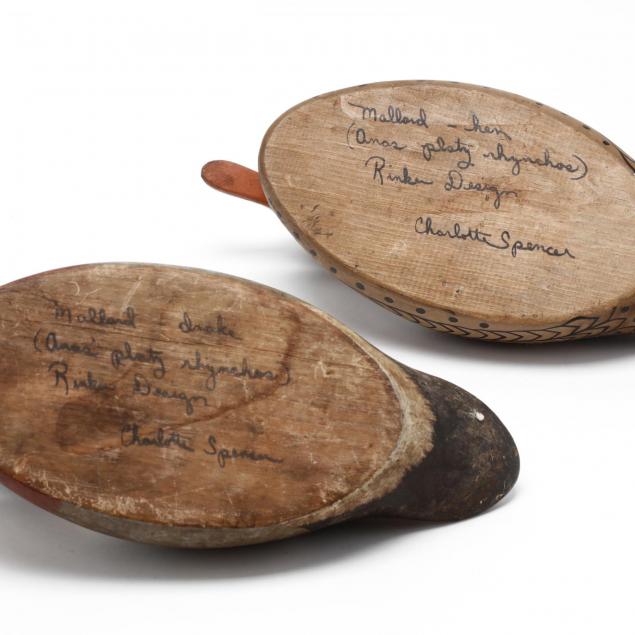 Mallard - hen
(Anas platy rhynchos)
Rinker Design
Charlotte Spencer
Mallard drake
(Anas platy rhynchos)
Rinker Design
Charlotte Spencer